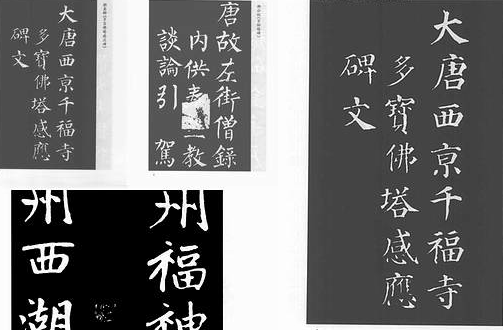 大唐西京千福寺
多寶佛塔感應
碑文
唐故左街僧錄
內供 教
談論引駕
州福神
州西湖
大唐西京千福寺
多寶佛塔感應
碑文